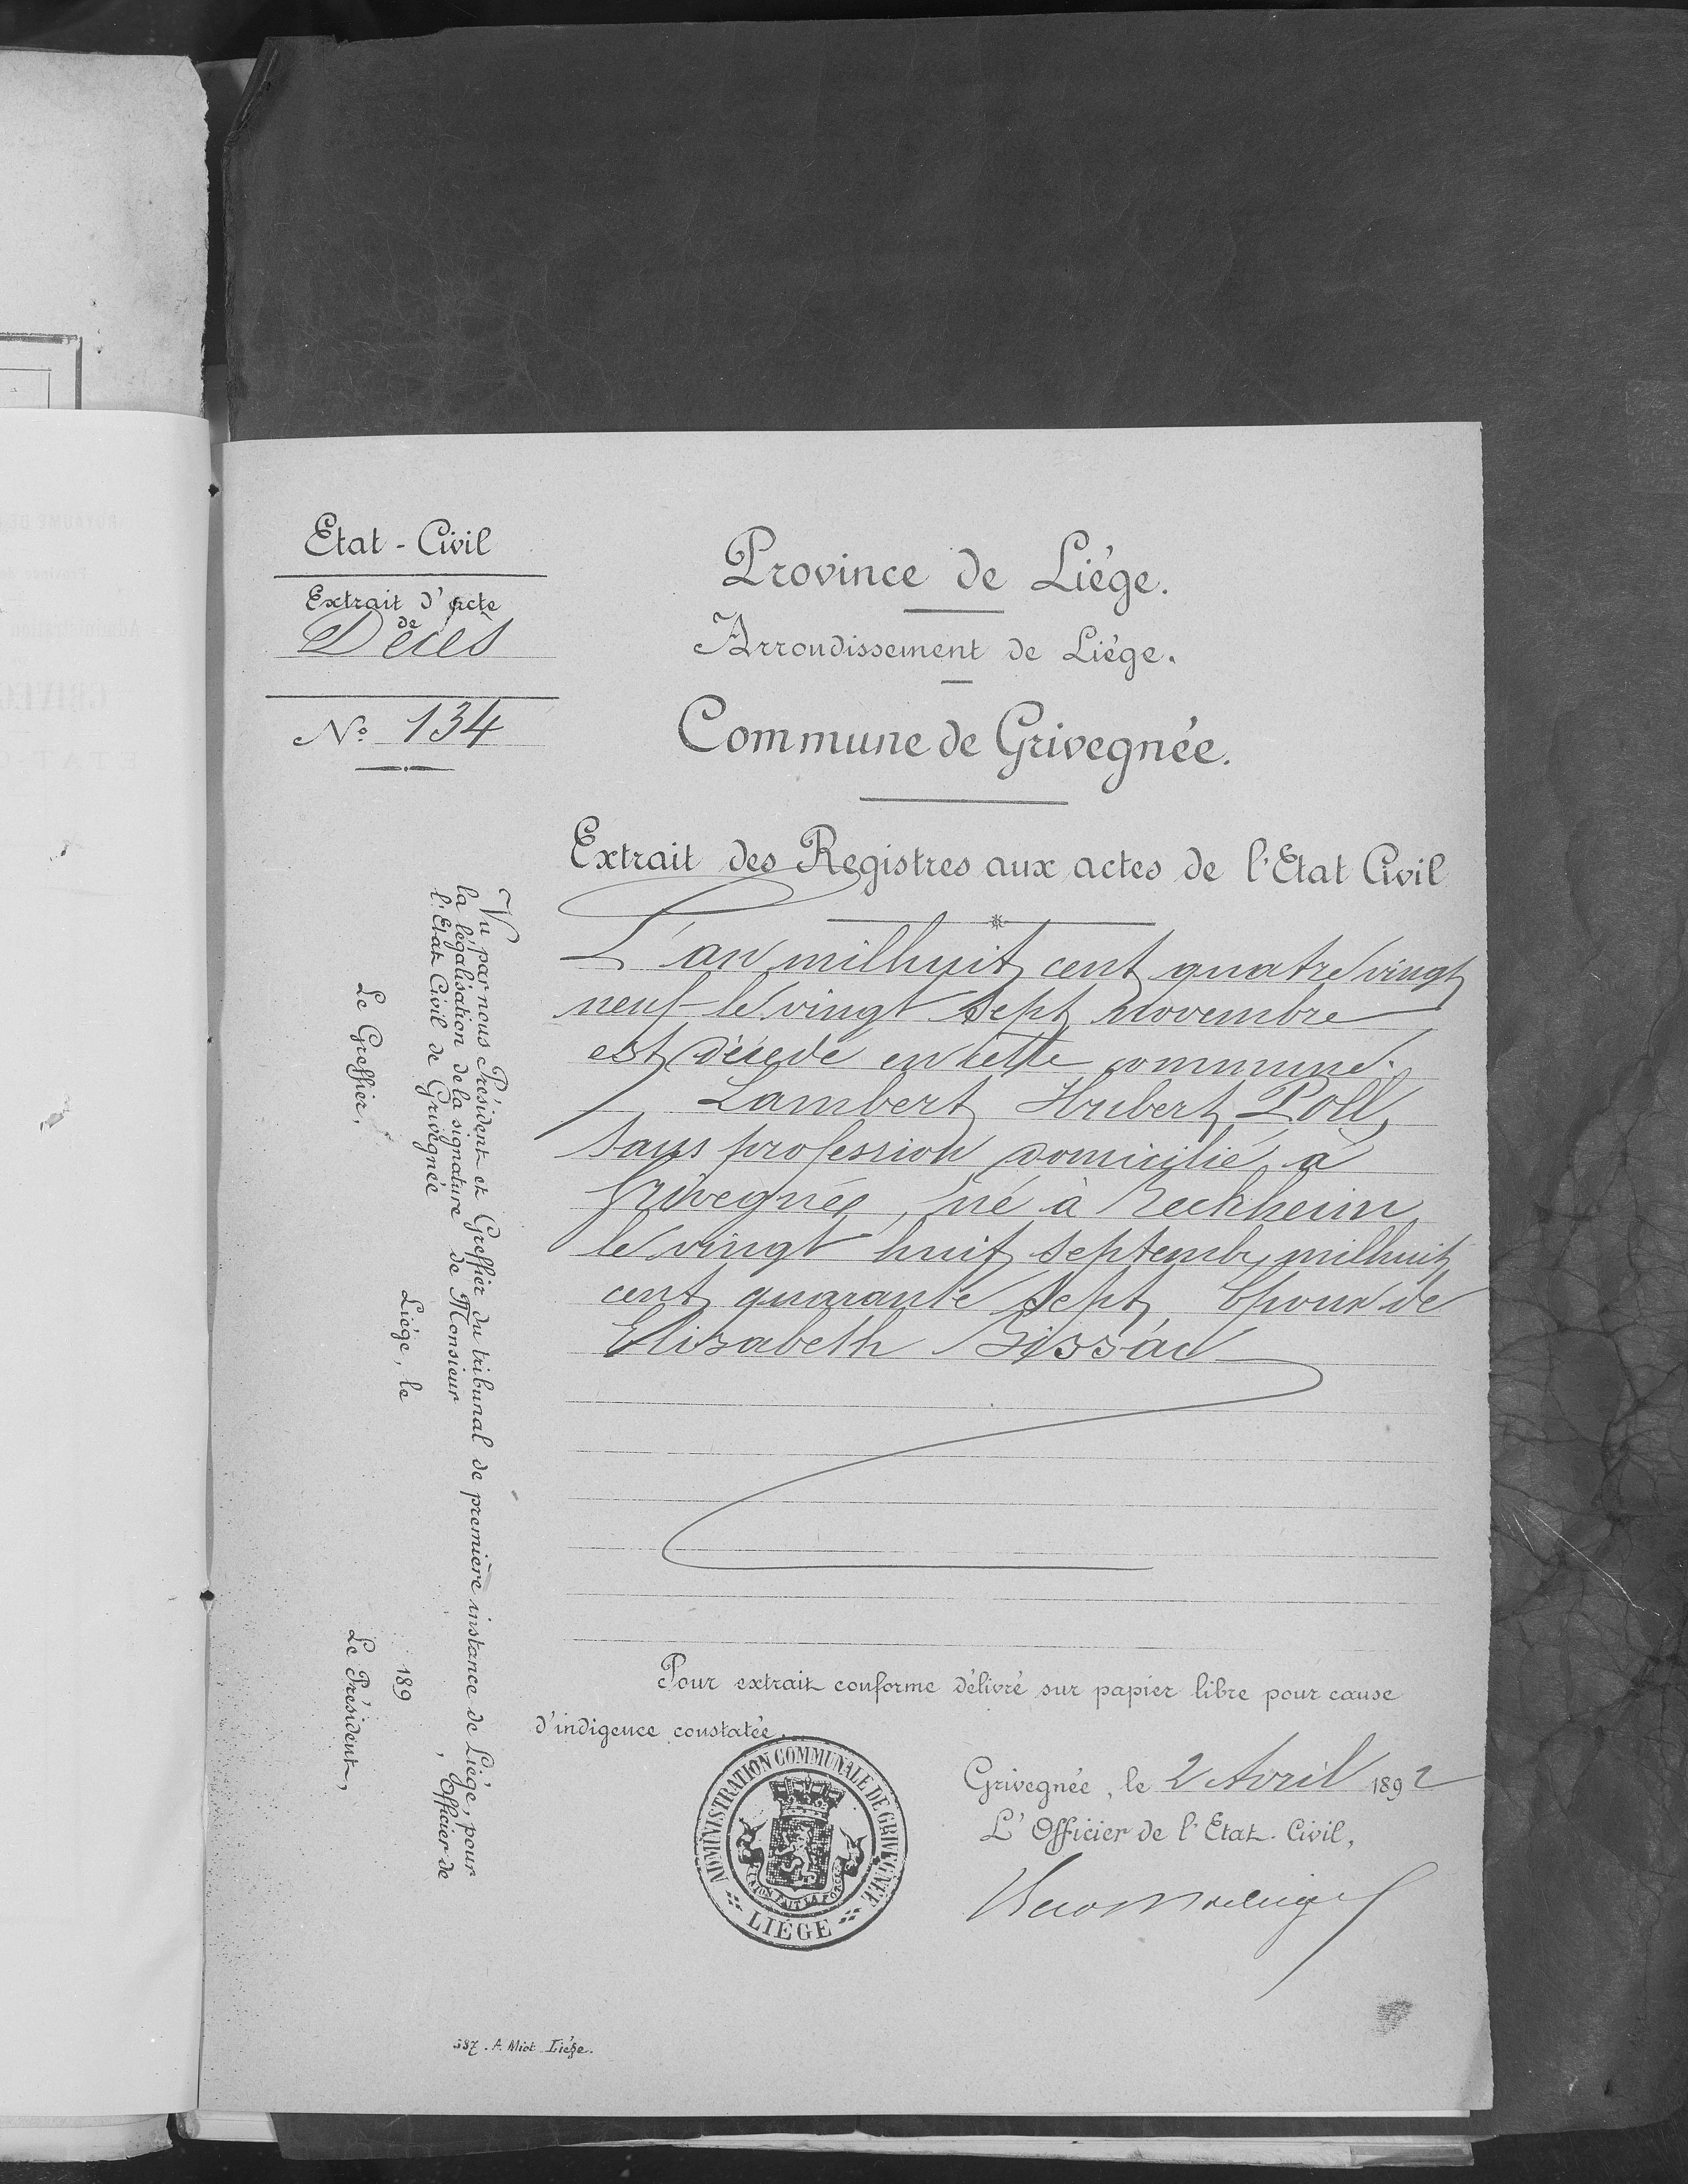 Etat-Civil
Extrait d'acte
de
Décès
N° 134
Province de Liége.
Arrondissement de Liége.
Commune de Grivegnée.
Extrait des Registres aux actes de l'Etat Civil
L'an milhuit cent quatre vingt
neuf le vingt sept novembre
est décédé en cette commune.
Lambert Hubert Poll,
sans profession domicilié à
Grivegnée, né à Reckheim
le vingt huit septembre milhuit
cent quarante sept Epoux de
Elisabeth Bissac
Pour extrait conforme délivré sur papier libre pour cause
d'indigence constatée.
Grivegnée, le 2 Avril 1892
L'Officier de l'Etat-Civil,
ADMINISTRATION COMMUNALE DE GRIVEGNÉE
L'UNION FAIT LA FORCE
LIÉGE
Vu par nous Président et Greffier du tribunal de première instance de Liége, pour
la légalisation de la signature de Monsieur , Officier de
l'Etat Civil de Grivegnée
Liége, le 189
Le Greffier, Le Président,
A. Miot Liége.